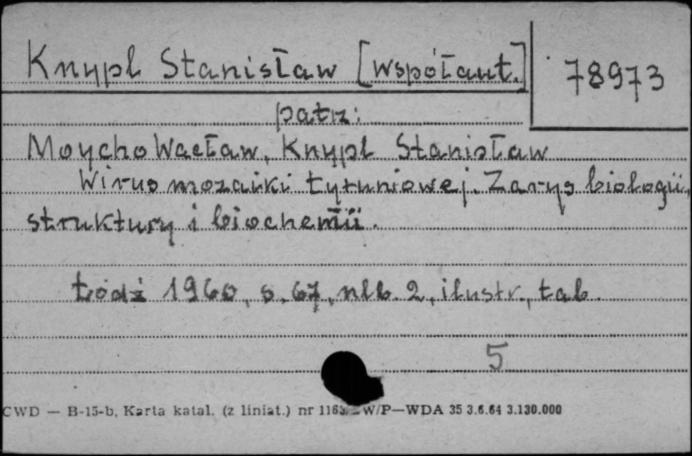 Knypl Stanisław [Współaut.] 78973
patrz:
Moycho Wacław, Knypl Stanisław
Wirus mozaiki tytuniowej. Zarys biologii,
struktury i biochemii.
Łódź 1960, s. 67, nlb. 2, ilustr., tab.
5
CWD — B-15-b, Karta katal. (z liniat.) nr W/P—WDA 35 3.6.64 3.130.000